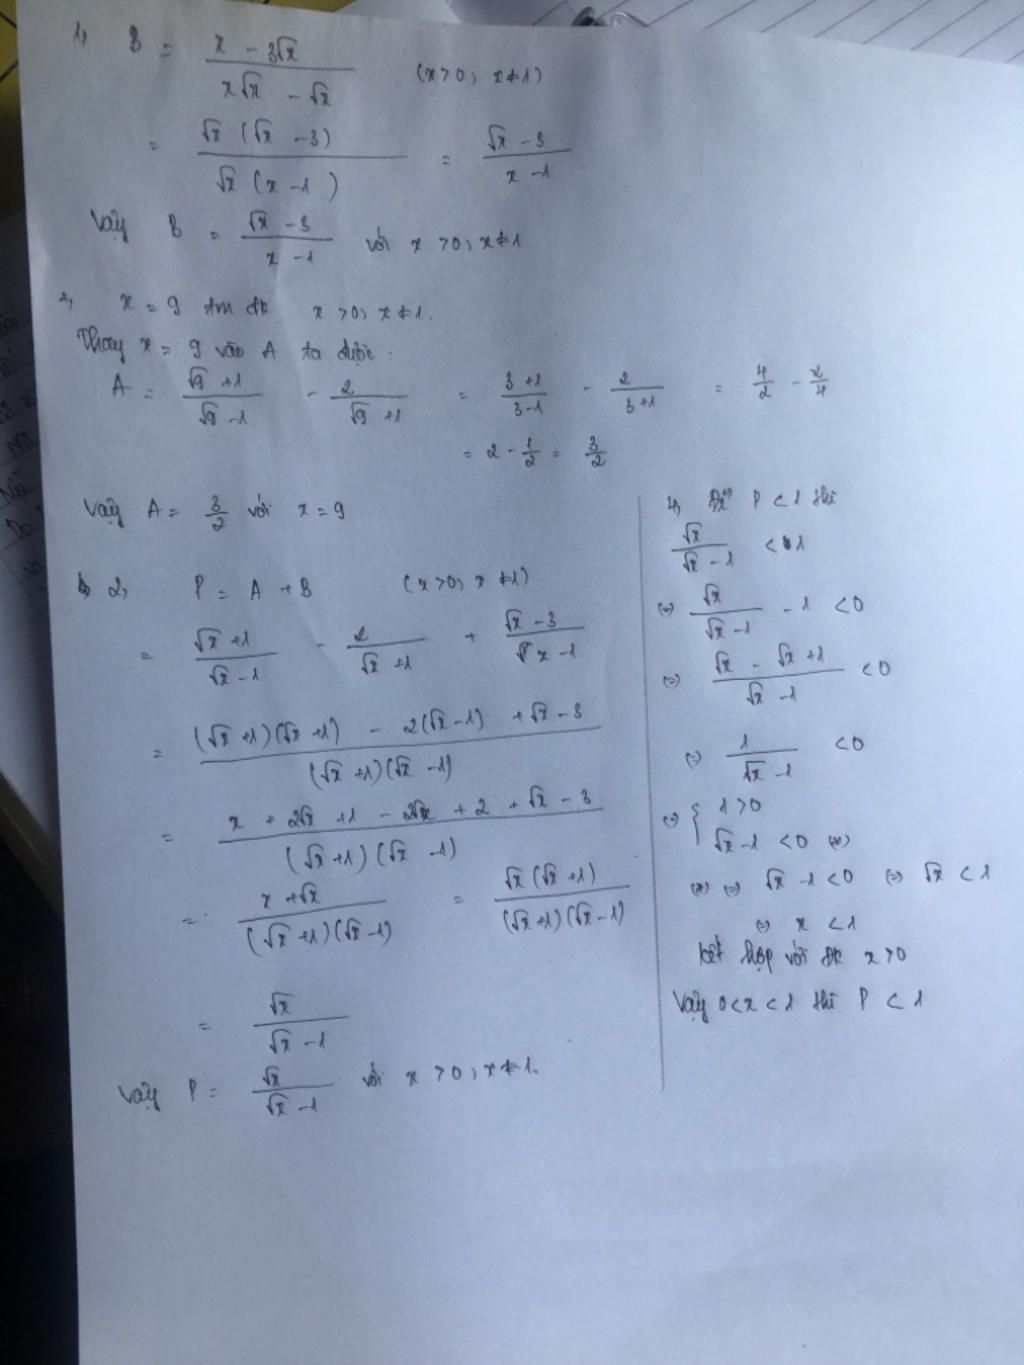 1, B = \frac{x - 3\sqrt{x}}{x\sqrt{x} - \sqrt{x}} (x>0; x≠1)
= \frac{\sqrt{x}(\sqrt{x} - 3)}{\sqrt{x}(x - 1)} = \frac{\sqrt{x} - 3}{x - 1}
Vậy B = \frac{\sqrt{x} - 3}{x - 1} với x > 0; x ≠ 1
2, x = 9 tm đk x > 0; x ≠ 1.
Thay x = 9 vào A ta được:
A = \frac{\sqrt{9} + 1}{\sqrt{9} - 1} - \frac{2}{\sqrt{9} + 1} = \frac{3 + 1}{3 - 1} - \frac{2}{3 + 1} = \frac{4}{2} - \frac{2}{4}
= 2 - \frac{1}{2} = \frac{3}{2}
Vậy A = \frac{3}{2} với x = 9
2, P = A + B (x > 0; x ≠ 1)
= \frac{\sqrt{x} + 1}{\sqrt{x} - 1} - \frac{2}{\sqrt{x} + 1} + \frac{\sqrt{x} - 3}{x - 1}
= \frac{(\sqrt{x} + 1)(\sqrt{x} + 1) - 2(\sqrt{x} - 1) + \sqrt{x} - 3}{(\sqrt{x} + 1)(\sqrt{x} - 1)}
= \frac{x + 2\sqrt{x} + 1 - 2\sqrt{x} + 2 + \sqrt{x} - 3}{(\sqrt{x} + 1)(\sqrt{x} - 1)}
= \frac{x + \sqrt{x}}{(\sqrt{x} + 1)(\sqrt{x} - 1)} = \frac{\sqrt{x}(\sqrt{x} + 1)}{(\sqrt{x} + 1)(\sqrt{x} - 1)}
= \frac{\sqrt{x}}{\sqrt{x} - 1}
Vậy P = \frac{\sqrt{x}}{\sqrt{x} - 1} với x > 0; x ≠ 1.
4, Để P < 1 thì
\frac{\sqrt{x}}{\sqrt{x} - 1} < 1
(=) \frac{\sqrt{x}}{\sqrt{x} - 1} - 1 < 0
(=) \frac{\sqrt{x} - \sqrt{x} + 1}{\sqrt{x} - 1} < 0
(=) \frac{1}{\sqrt{x} - 1} < 0
(=) { 1 > 0
\sqrt{x} - 1 < 0 (*)
(*) (=) \sqrt{x} - 1 < 0 (=) \sqrt{x} < 1
(=) x < 1
Kết hợp với đk x > 0
Vậy 0 < x < 1 thì P < 1